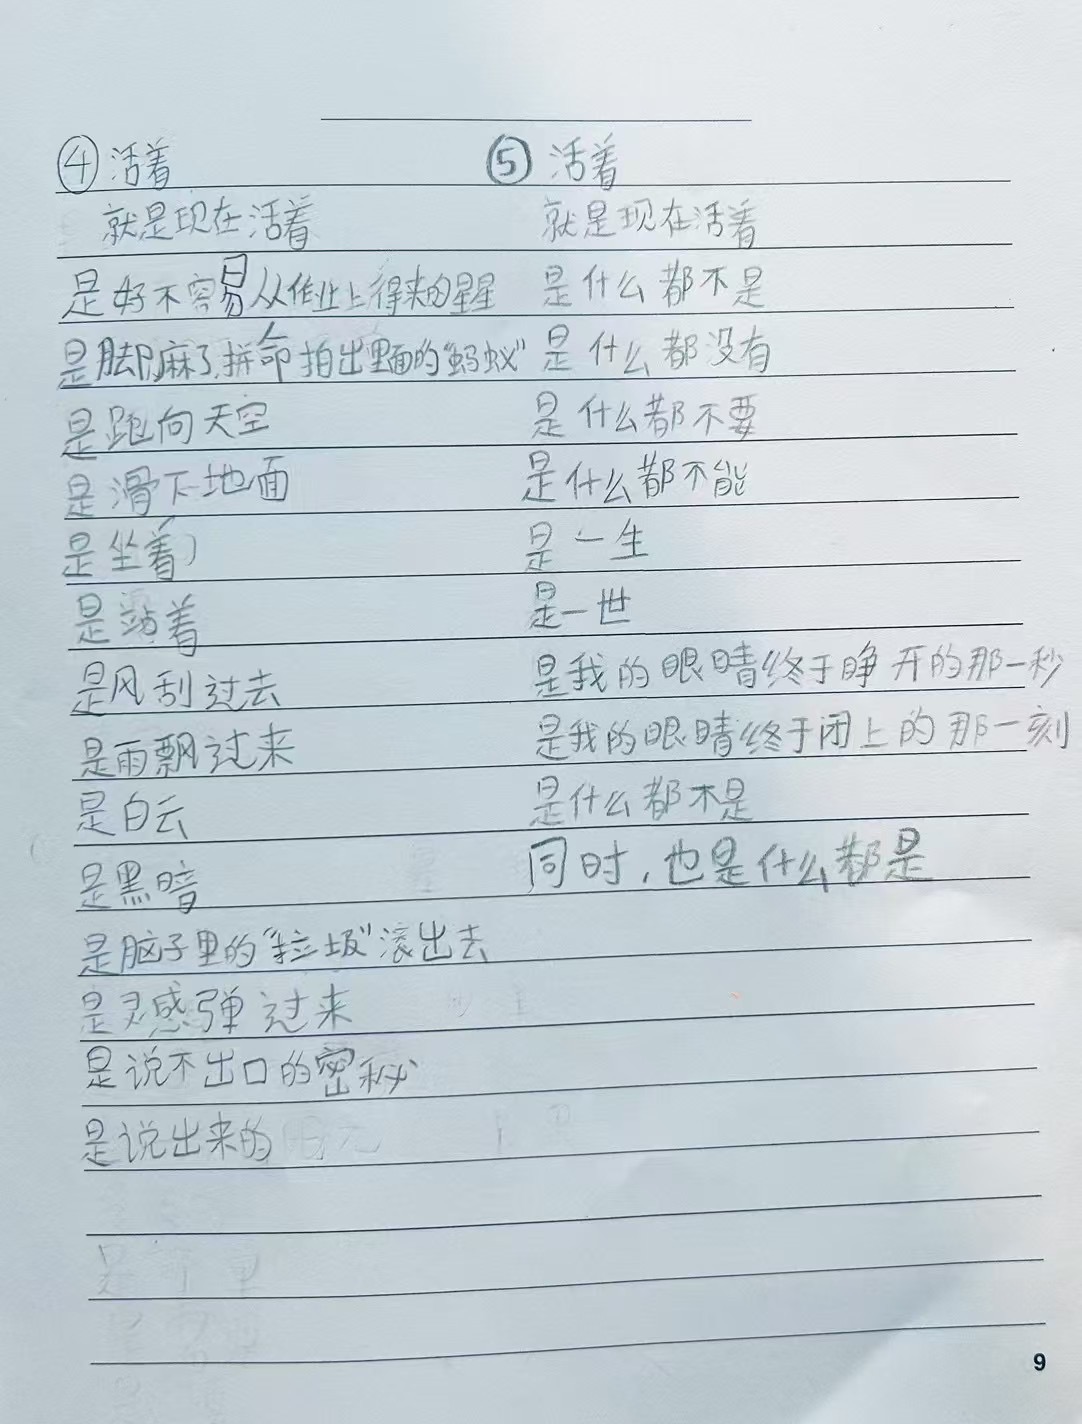 ④活着
就是现在活着
是好不容易从作业上得来的星星
是脚麻了,拼命拍出里面的“蚂蚁”
是跑向天空
是滑下地面
是坐着
是站着
是风刮过去
是雨飘过来
是白云
是黑暗
是脑子里的“垃圾”滚出去
是灵感弹过来
是说不出口的密秘
是说出来的
⑤活着
就是现在活着
是什么都不是
是什么都没有
是什么都不要
是什么都不能
是一生
是一世
是我的眼睛终于睁开的那一秒
是我的眼睛终于闭上的那一刻
是什么都不是
同时,也是什么都是
9